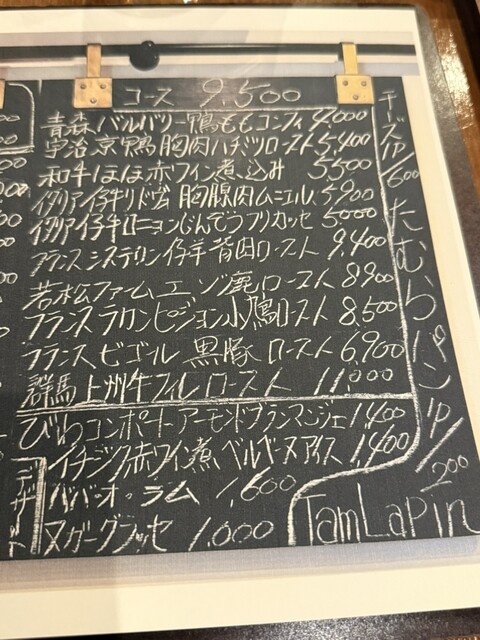 コース 9,500
青森 バルバリー鴨ももコンフィ 4,000
宇治 京鴨 胸肉ハチミツロースト 5,400
和牛ほほ赤ワイン煮込み 5,500
イタリア 仔牛リドヴォー 胸腺肉ムニエル 5,900
イタリア 仔牛ロニョンじんぞうフリカッセ 5000
フランス システロン仔羊背肉ロースト 9,400
若松ファームエゾ鹿ロースト 8,900
フランス ラカンピジョン小鳩ロースト 8,500
フランス ビゴール 黒豚 ロースト 6,900
群馬 上州牛フィレロースト 11,000
びわコンポートアーモンドブランマンジェ 1,400
イチジク赤ワイン煮ベルベーヌアイス 1,400
ババ・オ・ラム 1,600
ヌガーグラッセ 1,000
デザート
チーズ1P/600
たむらパン 1P/200
TamLapin